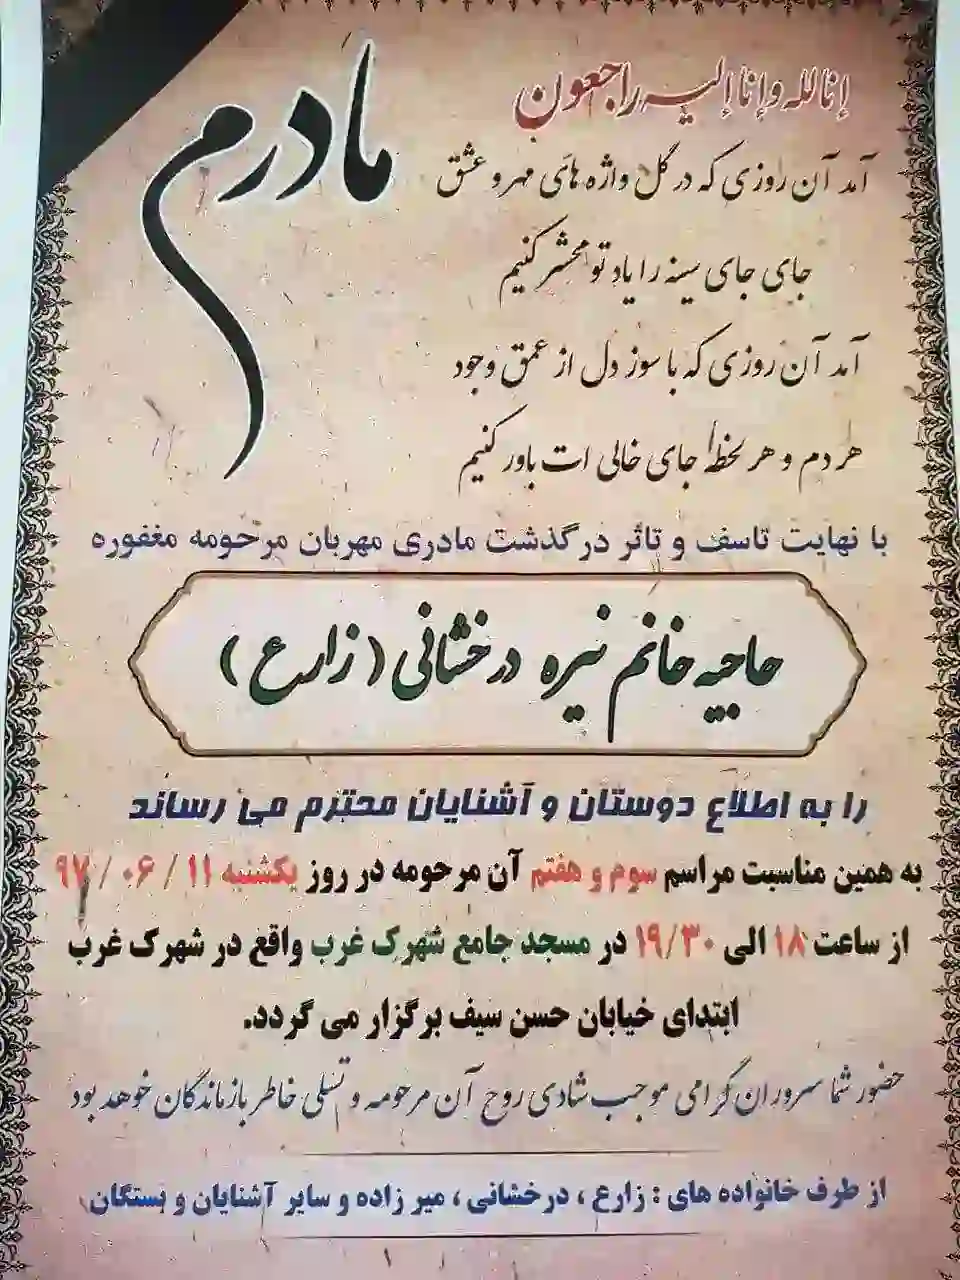 انا لله و انا الیه راجعون
مادرم
آمد آن روزی که در گل واژه های مهر و عشق
جای جای سینه را یاد تو محشر کنیم
آمد آن روزی که با سوز دل از عمق وجود
هر دم و هر لحظه جای خالی ات باور کنیم
با نهایت تاسف و تاثر درگذشت مادری مهربان مرحومه مغفوره
حاجیه خانم نیره درخشانی (زارع)
را به اطلاع دوستان و آشنایان محترم می رساند
به همین مناسبت مراسم سوم و هفتم آن مرحومه در روز یکشنبه ۱۱ / ۰۶ / ۹۷
از ساعت ۱۸ الی ۱۹/۳۰ در مسجد جامع شهرک غرب واقع در شهرک غرب
ابتدای خیابان حسن سیف برگزار می گردد.
حضور شما سروران گرامی موجب شادی روح آن مرحومه و تسلی خاطر بازماندگان خواهد بود
از طرف خانواده های : زارع ، درخشانی ، میر زاده و سایر آشنایان و بستگان